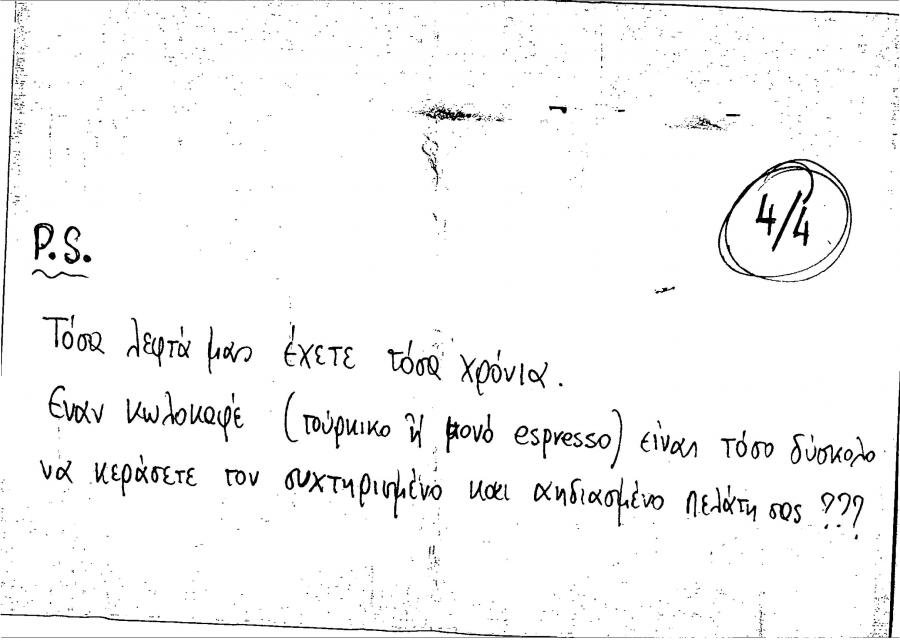 4/4
P.S.
Τόσα λεφτά μας έχετε τόσα χρόνια.
Έναν κωλοκαφέ (τούρκικο ή μονό espresso) είναι τόσο δύσκολο
να κεράσετε τον συχτηρισμένο και αηδιασμένο πελάτη σας ???